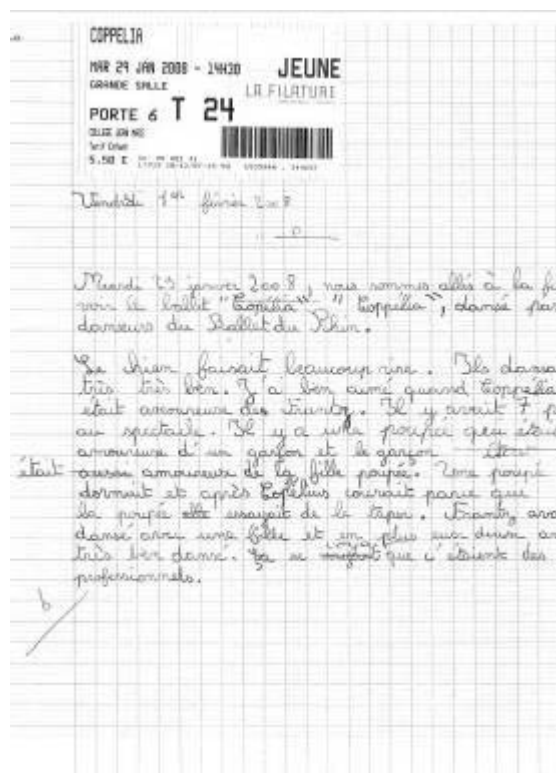 COPPELIA
MAR 29 JAN 2008 - 14H30 JEUNE
GRANDE SALLE LA FILATURE
PORTE 6 T 24
Tarif Enfant
5.50 E
Vendredi 1er février 2008
Mardi 29 janvier 2008, nous sommes allés à la fi
voir le ballet "Copélia" "Coppélia", dansé par
danseurs du Ballet du Rhin.
Le chien faisait beaucoup rire. Ils dansa
très très ben. J'a ben aimé quand Coppélia
était amoureuse de Frantz. Il y avait 7 p
au spectacle. Il y a une poupée qui étai
amoureuse d'un garçon et le garçon
était aussi amoureux de la fille poupée. Une poupé
dormait et après Copélius courait parce que
la poupée essayait de le taper. Frantz ava
dansé avec une fille et en plus eux deux on
très ben dansé. Ça se que c'étaient des
professionnels.